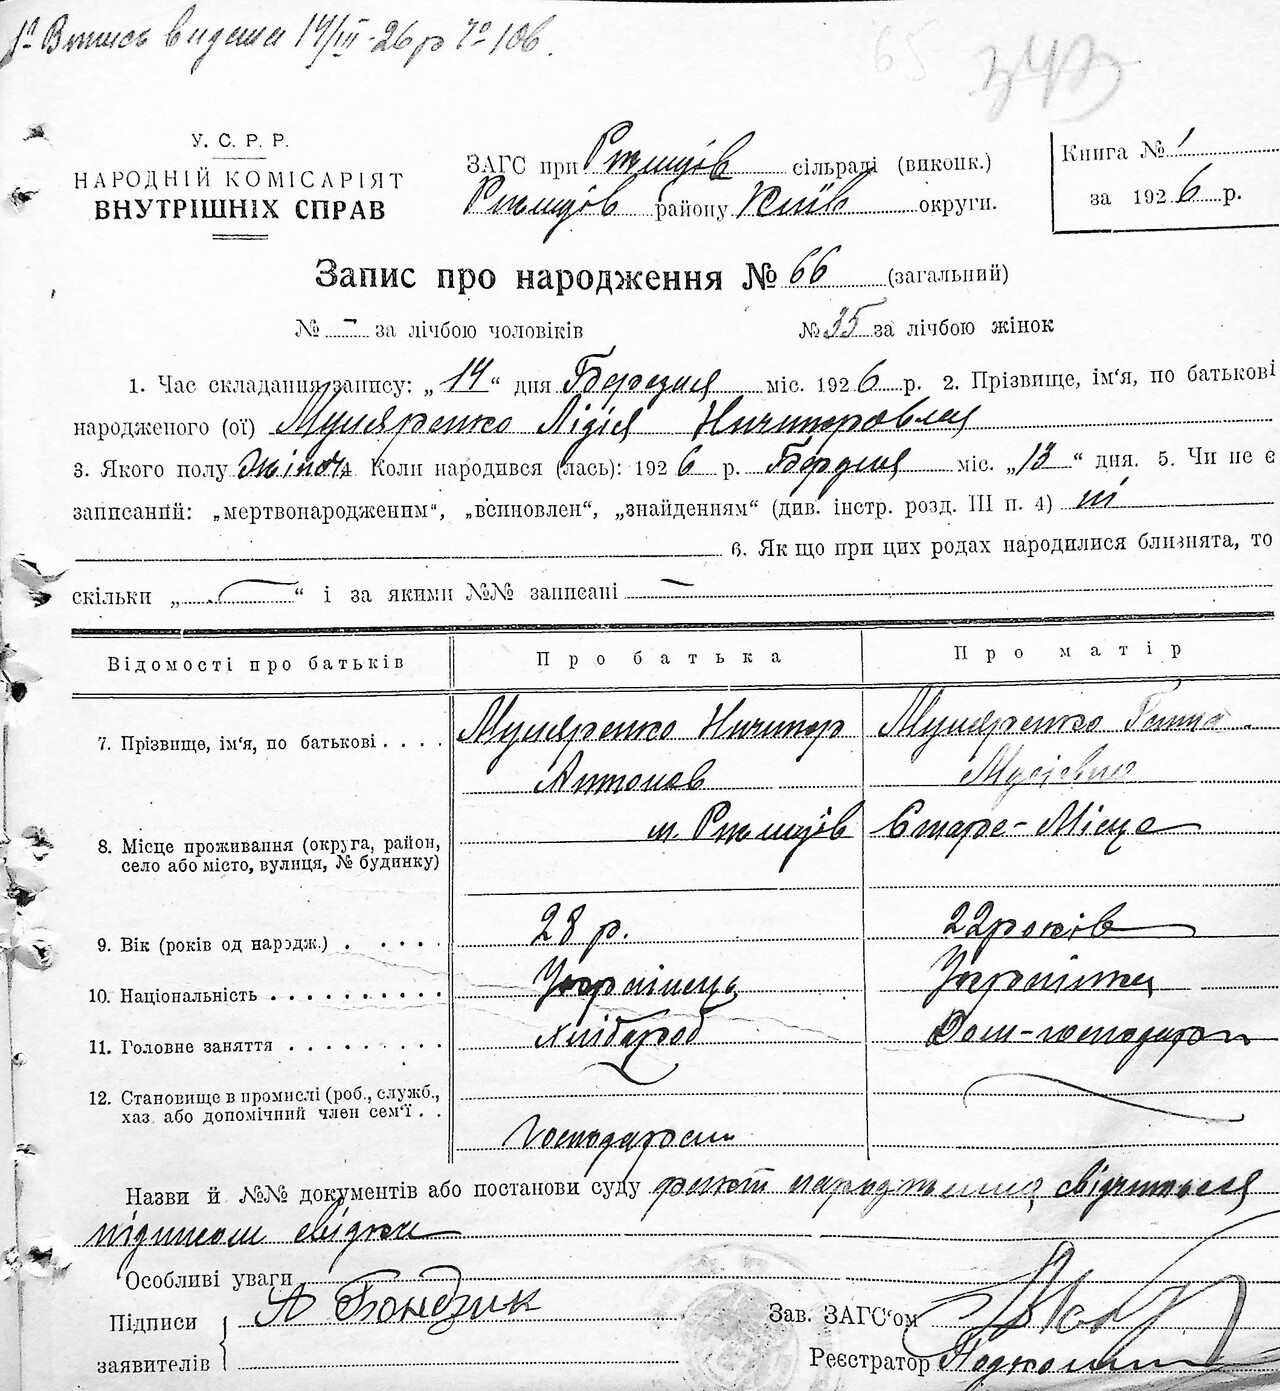 Випись видана 14/III-26 р № 106.
343
У. С. Р. Р.
НАРОДНІЙ КОМІСАРІЯТ
ВНУТРІШНІХ СПРАВ
ЗАГС при Ржищів сільраді (виконк.)
Ржищів району Київ округи.
Книга № 1
за 1926 р.
Запис про народження № 66 (загальний)
№ - за лічбою чоловіків № 35 за лічбою жінок
1. Час складання запису: „14“ дня Березня міс. 1926 р. 2. Прізвище, ім'я, по батькові
народженого (ої) Муляренко Лідія Ничипоровна
3. Якого полу жіноч. Коли народився (лась): 1926 р. Березня міс. „13“ дня. 5. Чи не є
записаний: „мертвонародженим“, „всиновлен“, „знайденням“ (див. інстр. розд. III п. 4) ні
6. Як що при цих родах народилися близнята, то
скільки „—“ і за якими №№ записані —
Відомості про батьків Про батька Про матір
7. Прізвище, ім'я, по батькові Муляренко Ничипор Муляренко Ганна
Антонов Мусіевна
8. Місце проживання (округа, район, м. Ржищів Старе-Місце
село або місто, вулиця, № будинку)
9. Вік (років од народж.) 28 р. 22 років
10. Національність Українець Українка
11. Головне заняття Хлібороб Дом-господарка
12. Становище в промислі (роб., служб.,
хаз. або допомічний член сем'ї
Господарем
Назви й №№ документів або постанови суду факт народження свідчиться
підписом свідки
Особливі уваги
Підписи А Бондзик Зав. ЗАГС'ом
заявителів Реєстратор